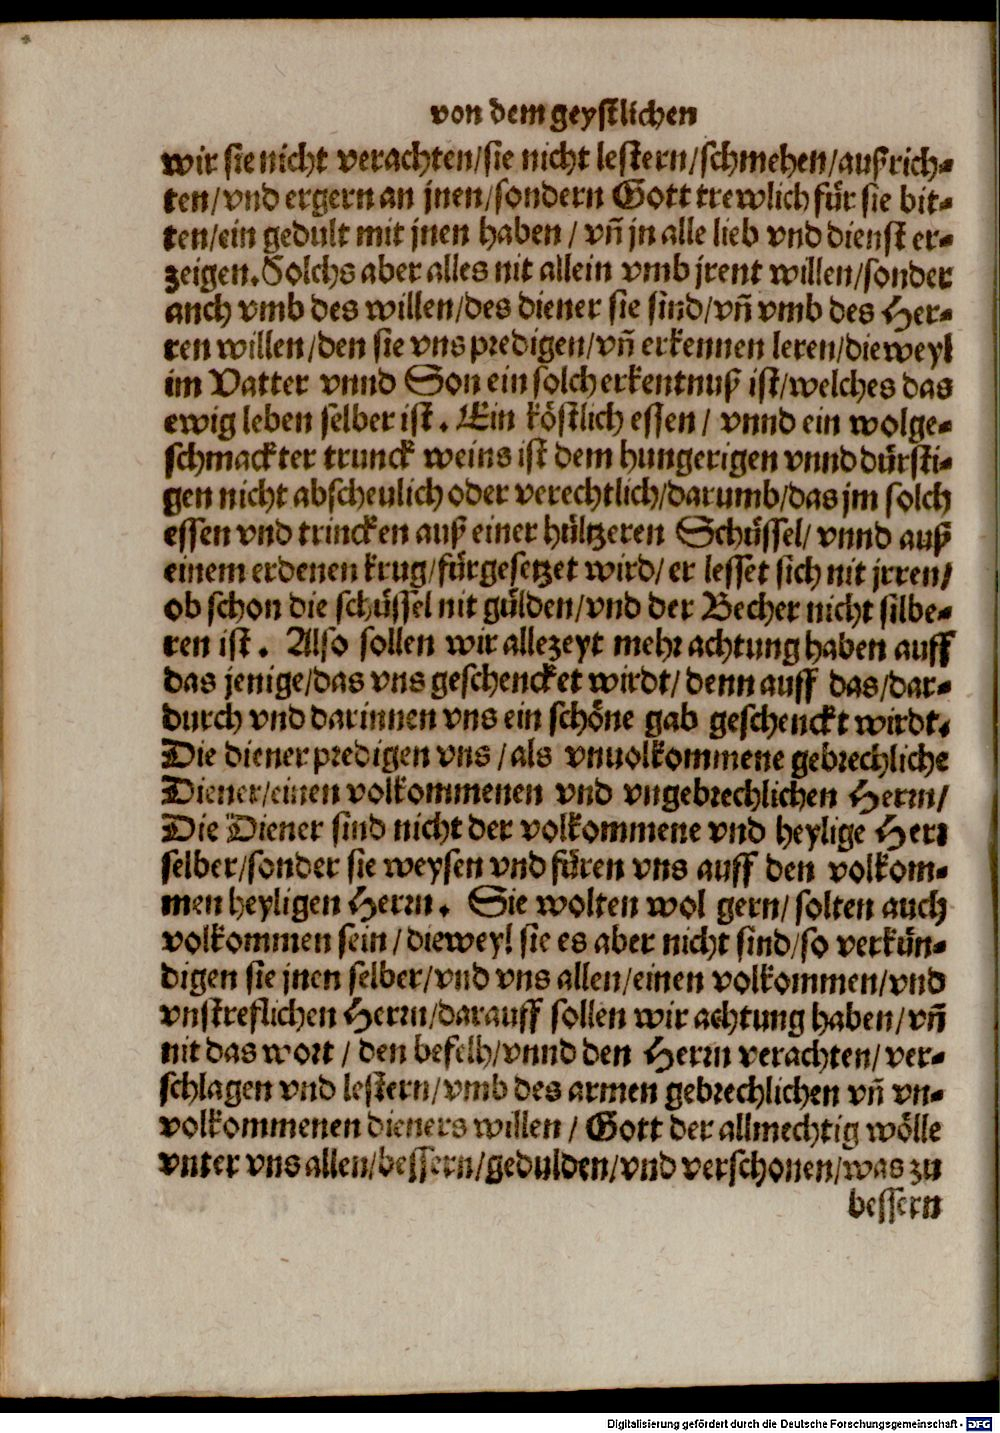 von dem geystlichen
wir sie nicht verachten/sie nicht lestern/schmehen/außrich-
ten/vnd ergern an jnen/sondern Gott trewlich für sie bit-
ten/ein gedult mit jnen haben / vñ jn alle lieb vnd dienst er-
zeigen. Solchs aber alles nit allein vmb jrent willen/sonder
auch vmb des willen/des diener sie sind/vñ vmb des Her-
ren willen/den sie vns predigen/vñ erkennen leren/dieweyl
im Vatter vnnd Son ein solch erkentnuß ist/welches das
ewig leben selber ist. Ein köstlich essen / vnnd ein wolge-
schmackter trunck weins ist dem hungerigen vnnd dürsti-
gen nicht abscheulich oder verechtlich/darumb/das jm solch
essen vnd trincken auß einer hültzeren Schüssel/ vnnd auß
einem erdenen krug/fürgesetzet wird/ er lesset sich nit jrren/
ob schon die schüssel nit gülden/vnd der Becher nicht silbe-
ren ist. Also sollen wir allezeyt mehr achtung haben auff
das jenige/das vns geschencket wirdt/ denn auff das/dar-
durch vnd darinnen vns ein schöne gab geschenckt wirdt.
Die diener predigen vns / als vnuolkommene gebrechliche
Diener/einen volkommenen vnd vngebrechlichen Herrn/
Die Diener sind nicht der volkommene vnd heylige Herr
selber/sonder sie weysen vnd füren vns auff den volkom-
men heyligen Herrn. Sie wolten wol gern/ solten auch
volkommen sein / dieweyl sie es aber nicht sind/so verkün-
digen sie jnen selber/vnd vns allen/einen volkommen/vnd
vnstreflichen Herrn/darauff sollen wir achtung haben/vñ
nit das wort / den befelh/vnnd den Herrn verachten/ ver-
schlagen vnd lestern/vmb des armen gebrechlichen vñ vn-
volkommenen dieners willen / Gott der allmechtig wölle
vnter vns allen/bessern/gedulden/vnd verschonen/was zu
bessern
Digitalisierung gefördert durch die Deutsche Forschungsgemeinschaft - DFG